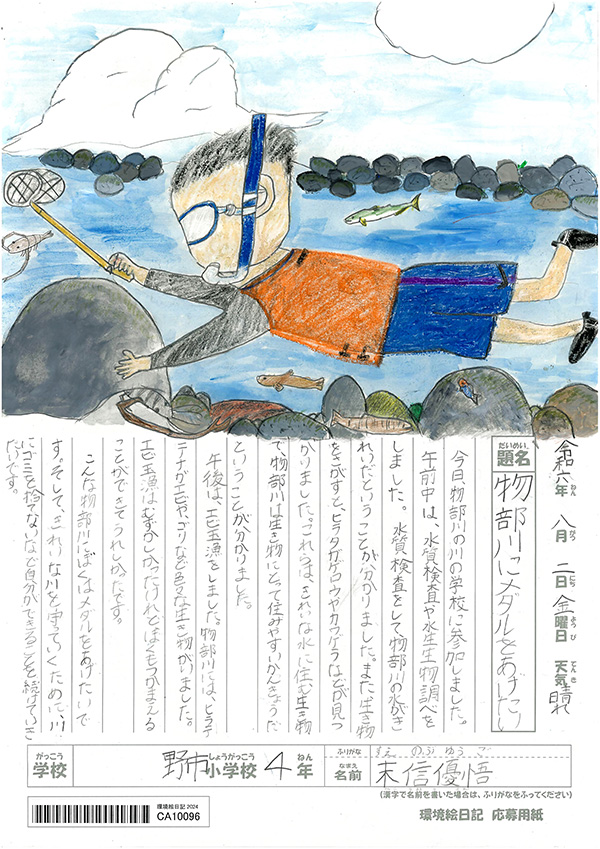 令和六年 八月 二日 金曜日 天気 晴れ
ねん がつ にち ようび てんき
だいめい
題名 物部川にメダルをあげたい
今日、物部川の川の学校に参加しました。
午前中は、水質検査や水生生物調べを
しました。水質検査をして、物部川の水がき
れいだということが分かりました。また、生き物
をさがすと、ヒラタカゲロウやカワゲラなどが見つ
かりました。これらは、きれいな水に住む生き物
で、物部川は生き物にとって住みやすいかんきょうだ
ということが分かりました。
午後は、エビ玉漁をしました。物部川には、ヒラテ
テナガエビや、ゴリなど色々な生き物がいました。
エビ玉漁はむずかしかったけれどぼくもつかまえる
ことができてうれしかったです。
こんな物部川にぼくはメダルをあげたいで
す。そして、きれいな川を守っていくために、川
にゴミを捨てないなど自分ができることを続けていき
たいです。
がっこう しょうがっこう ねん
学校 野市小学校 4年
ふりがな すえ のぶ ゆう ご
なまえ
名前 末信優悟
(漢字で名前を書いた場合は、ふりがなをふってください)
環境絵日記 2024
CA10096
環境絵日記 応募用紙